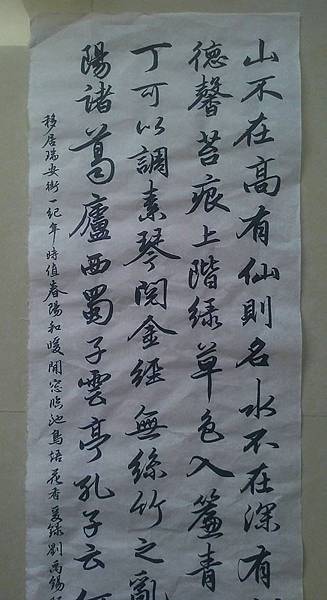 山不在高有仙則名水不在深有
德馨苔痕上階綠草色入簾青
丁可以調素琴閱金經無絲竹之亂
陽諸葛廬西蜀子雲亭孔子云何
移居瑞安街一紀年時值春陽和暖開窓臨池鳥語花香爰錄劉禹錫